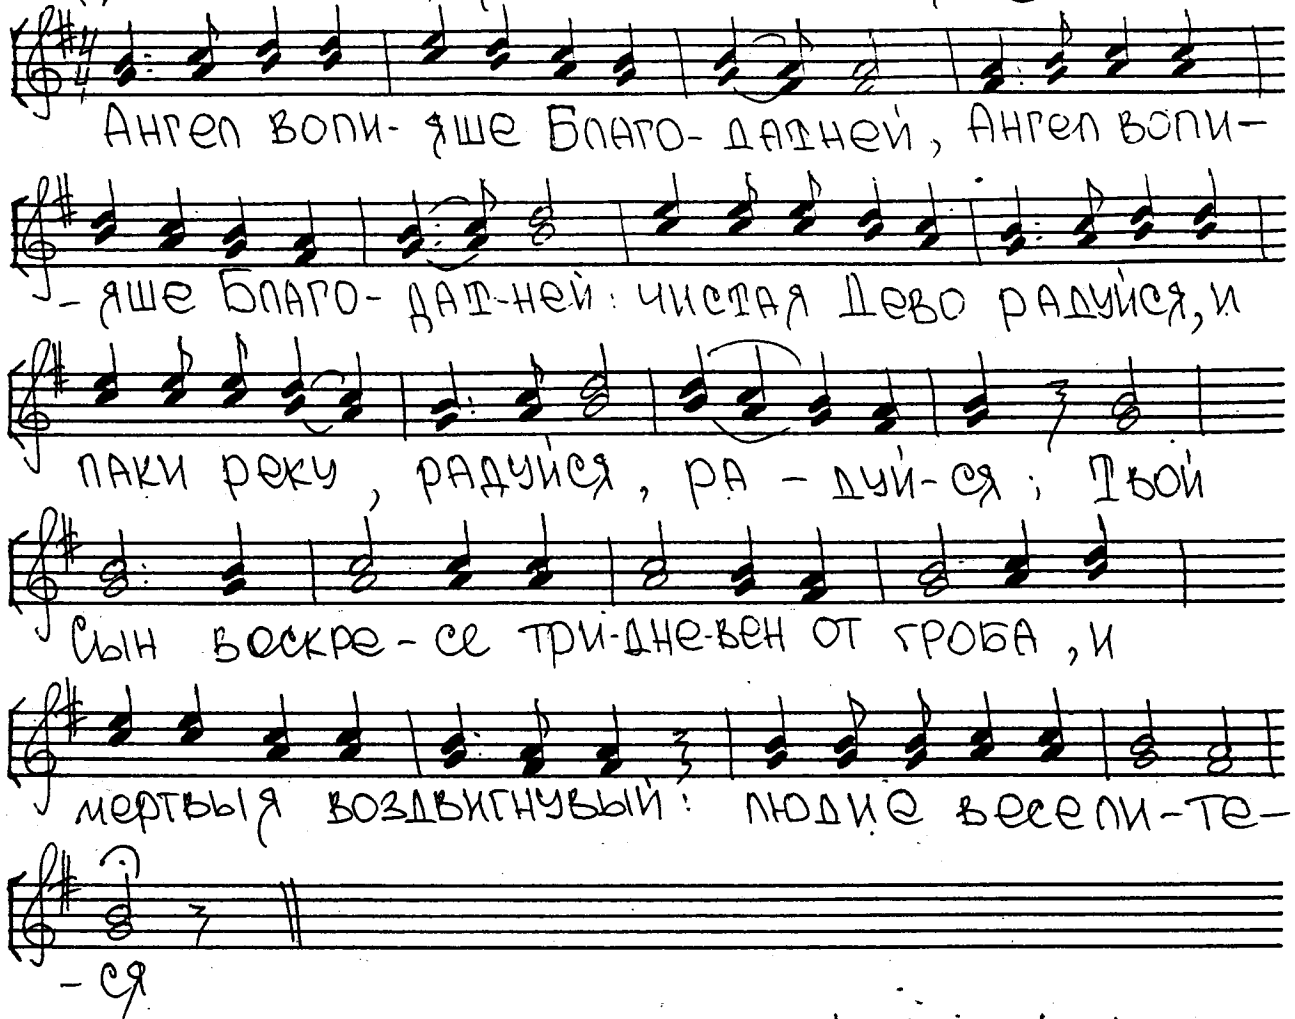 Ангел вопи- яше Благо- датней, Ангел вопи-
- яше Благо- дат-ней: чистая Дево радуйся, и
паки реку, радуйся, ра - дуй-ся; Твой
Сын воскре-се три-дне-вен от гроба, и
мертвыя воздвигнувый: людие весели-те-
- ся